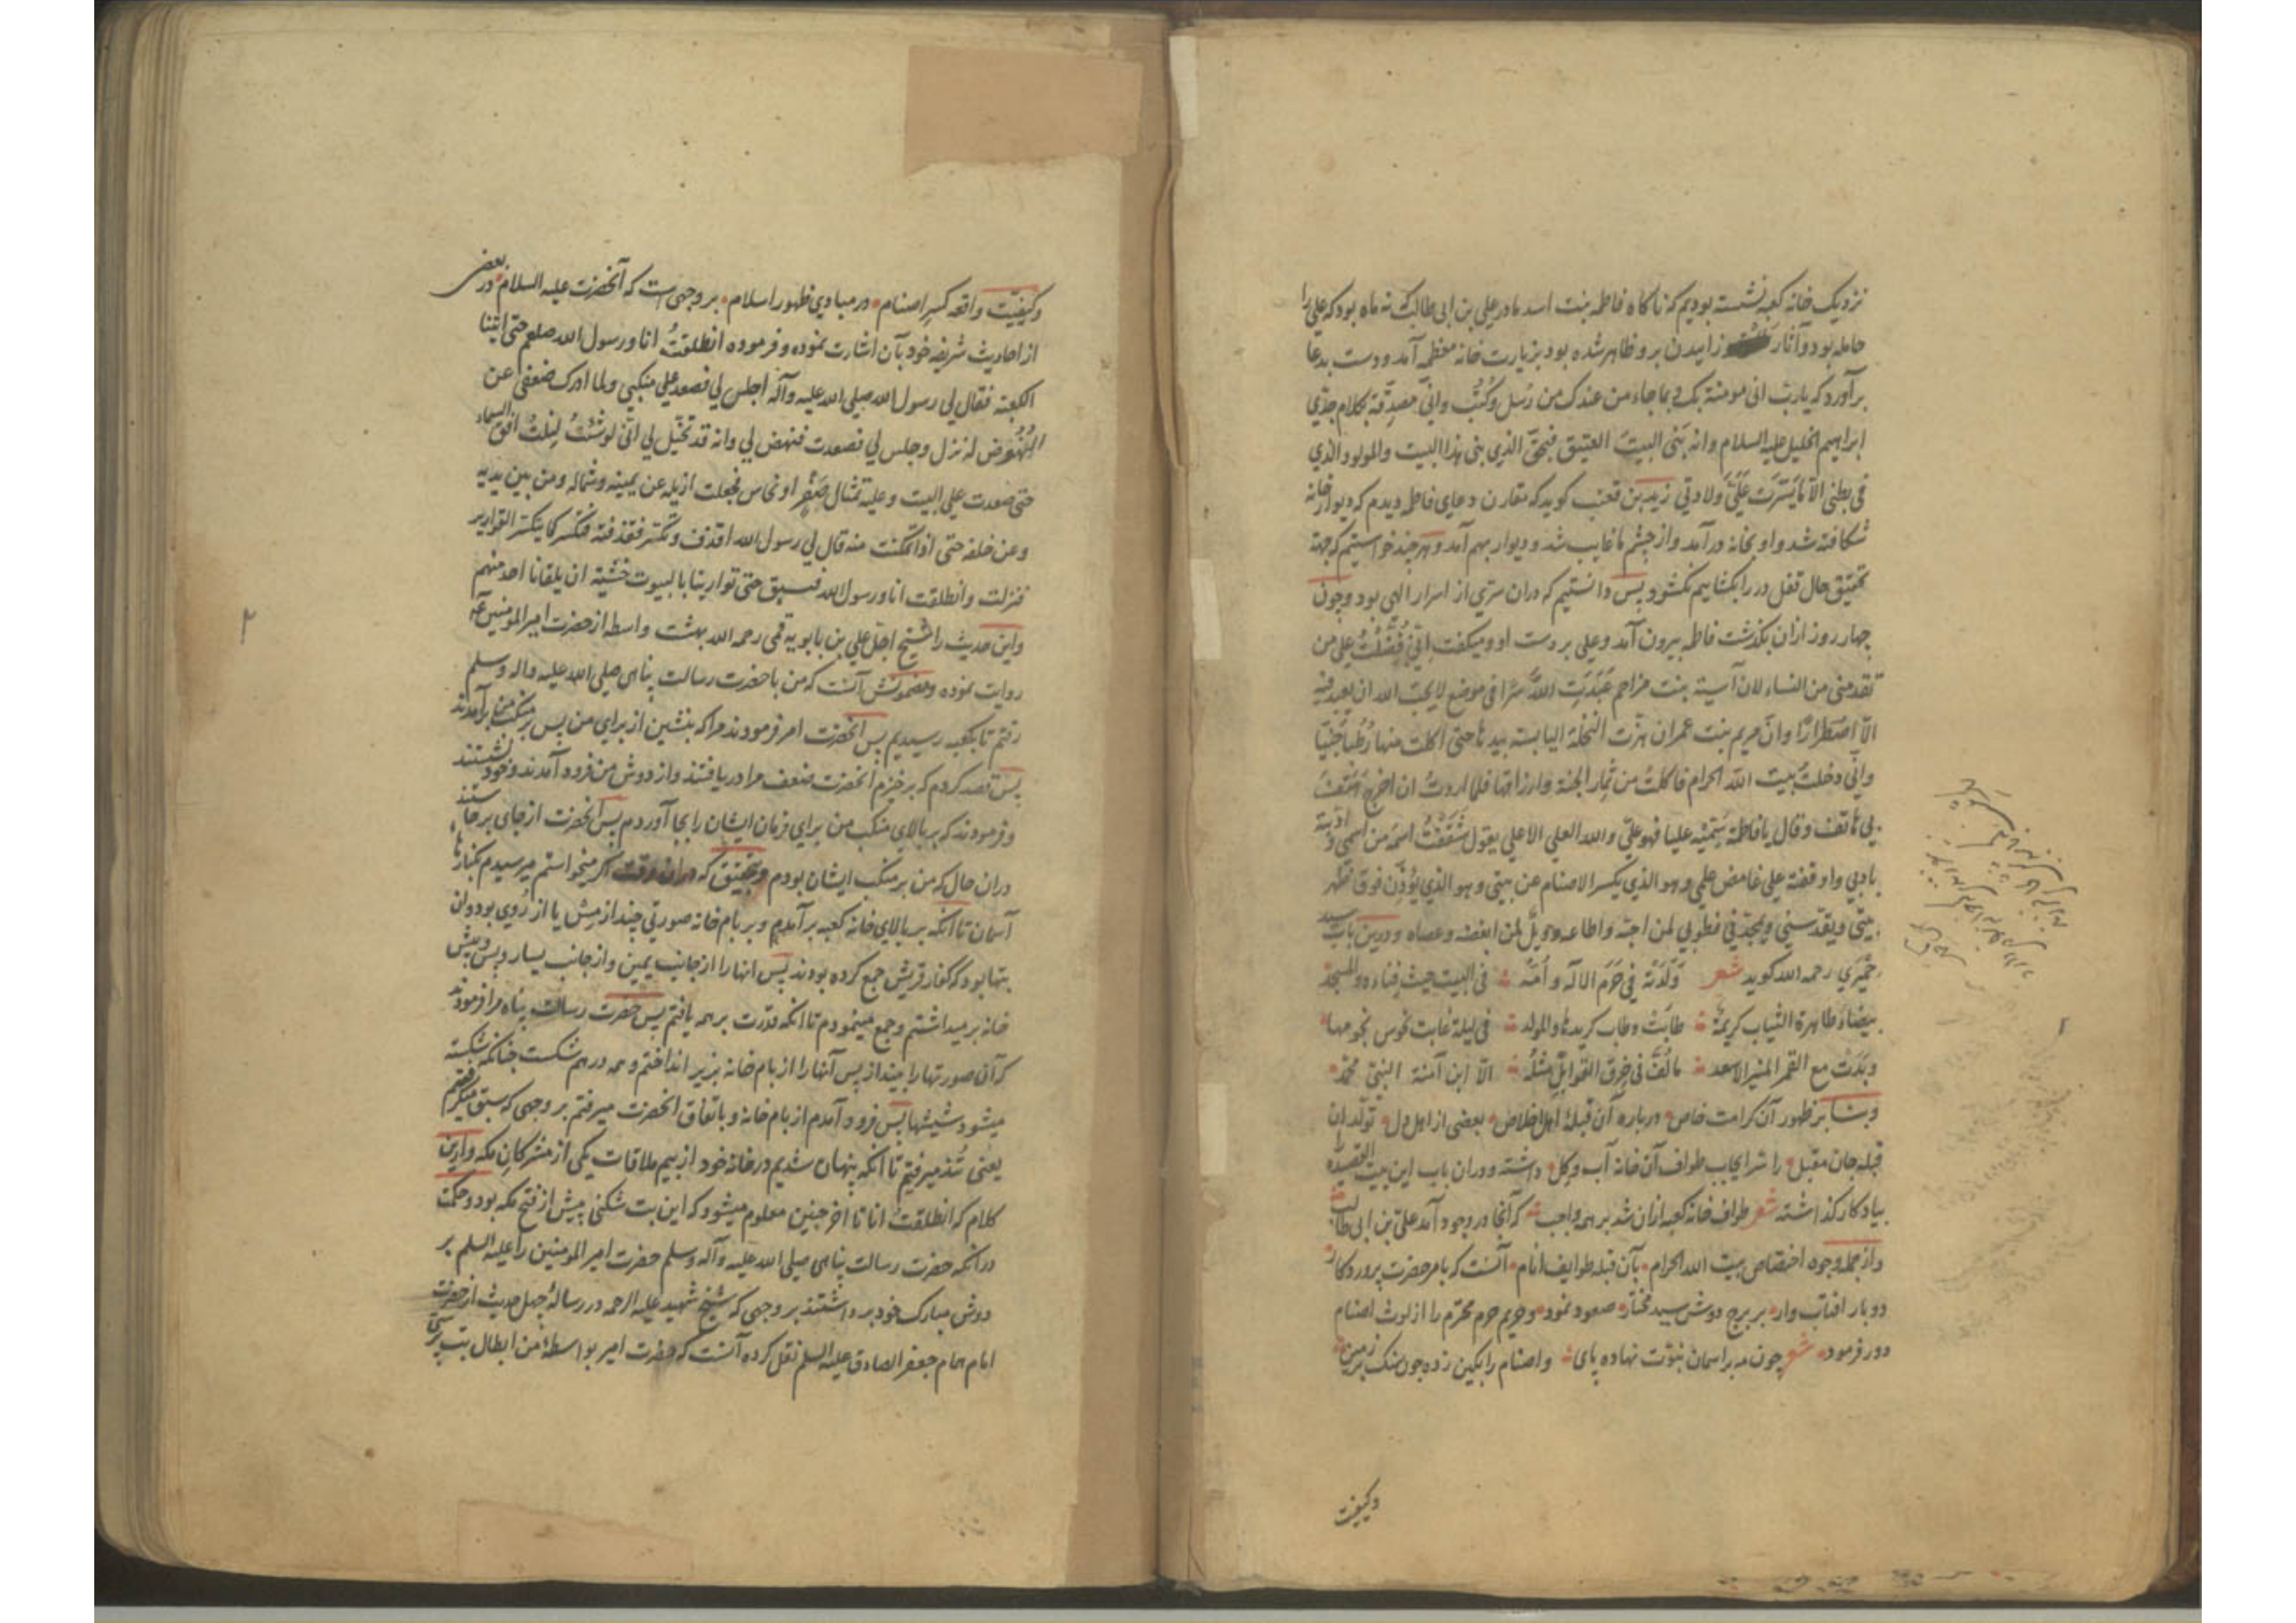 نزدیک خانه کعبه نشسته بودیم که ناکاه فاطمه بنت اسد مادر علی بن ابی طالب که نه ماه بود که علی را
حامله بود و آثار زاییدن برو ظاهر شده بود بزیارت خانه معظمه آمد و دست بدعا
برآورد که یارب انی مومنة بک و بما جاء من عندک من رُسل وکُتُب وانی مصدقة بکلام جدّی
ابراهیم الخلیل علیه السلام وانه بَنی البیتَ العتیق فبحقّ الذی بنی هذا البیت والمولود الذی
فی بطنی الّا ما یَسَّرت عَلَیَّ ولادتی زیدبن قعنب کوید که مقارن دعای فاطمه دیدم که دیوار خانه
شکافته شد و او بخانه درآمد و از چشم ما غایب شد و دیوار بهم آمد و هرچند خواستیم که جهة
تحقیق حال قفل در را بکشاییم نکشود پس دانستیم که دران سرّی از اسرار الهی بود و چون
چهار روز ازان بکذشت فاطمه بیرون آمد و علی بر دست او و میکفت انّی فُضّلتُ علی من
تقدمنی من النساء لان آسیة بنت مزاحم عَبَدَتِ اللّهَ سرّا فی موضع لایحب الله ان یعبد فیه
الّا اضطرارًا وانّ مریم بنت عمران هزّت النخلة الیابسة بیدها حتی اکلت منها رُطَبًا جَنیًّا
وانّی دخلتُ بیت اللّه الحرام فاکلتُ من ثمار الجنة وارزاقها فلما اردتُ ان اخرج هَتَفَ
بی هاتف وقال یا فاطمة سَمّیه علیا فهو علیّ والله العلی الاعلی یقول شَقَقتُ اسمَه من اسمی وادّبته
بادبی واوقفته علی غامض علمی وهو الذی یکسر الاصنام عن بیتی وهو الذی یؤذّن فوق ظهر
بیتی ویقدّسنی ویمجّدنی فطوبی لمن احبّه واطاعه وویلٌ لمن ابغضه وعصاه ودرین باب سید
حِمیَری رحمه الله کوید شعر وَلَدَتهُ فی حَرَم الاله وأمّه فی البیت حیث فِناءه والمسجد
بیضاءُ طاهرة الثیاب کریمةٌ طابَت وطاب کریدها والمولد فی لیلة غابت نحوس نجومها
وبَدَت مع القمر المنیر الاسعد ما لُفَّ فی خِرَق القوابل مثلُه الّا ابن آمنة النبیّ محمّد
وبنا بر ظهور آن کرامت خاص درباره آن قبلهٔ اهل اخلاص بعضی از اهل دل تولّد ان
قبله جان مقبل را سر ایجاب طواف آن خانه آب وکل داشته ودران باب این بیت القصیده
بیادکار کذاشته شعر طواف خانه کعبه ازان شد بر همه واجب که آنجا در وجود آمد علیّ بن ابی طالب
واز جمله وجوه اختصاص بیت الله الحرام بآن قبله طوایف انام آنست که بامر حضرت پروردکار
دوبار افتاب وار بر برج دوش سید مختار صعود نمود وحریم حرم محترم را از لوث اصنام
دور فرمود شعر چون مه بر اسمان نبوّت نهاده پای واصنام را بکین زده چون سنک بر زمین
وکیفیت
وکیفیّت واقعه کسرِ اصنام در مبادی ظهور اسلام بر وجهی است که آنحضرت علیه السلام در بعضی
از احادیث شریفه خود بآن اشارت نموده وفرموده انطلقتُ انا ورسول الله صلعم حتی اتینا
الکعبة فقال لی رسول الله صلی الله علیه وآله اجلس لی فصعد علی منکبی ولما ادرک ضعفی عن
النُهُوض له نزل وجلس لی فصعدت فنهض لی وانه قد تخیّل لی انّی لو شئتُ لَنِلتُ افق السماء
حتی صعدت علی البیت وعلیه تمثال صُفرٍ او نحاس فجعلت ازیله عن یمینه وشماله ومن بین یدیه
وعن خلفه حتی اذا تمکنت منه قال لی رسول الله اقذف وتکسر فقذفته فتکسر کما یتکسر القواریر
فنزلت وانطلقت انا ورسول الله فسبق حتی توارینا بالبیوت خشیة ان یلقانا احد منهم
واین حدیث را شیخ اجل علی بن بابویه قمی رحمه الله بهشت واسطه از حضرت امیرالمومنین عه
روایت نموده ومضمونش آنست که من با حضرت رسالت پناهی صلی الله علیه واله وسلم
رفتم تا بکعبه رسیدیم پس آنحضرت امر فرمودند مرا که بنشین از برای من پس بر منکب من برآمدند
پس قصد کردم که برخیزم آنحضرت ضعف مرا دریافتند واز دوش من فرود آمدند وخود نشستند
وفرمودند که بر بالای منکب من برای فرمان ایشان را بجا آوردم پس آنحضرت از جای برخاستند
دران حال که من بر منکب ایشان بودم وبتحقیق که دران وقت اکر میخواستم میرسیدم بکنارهای
آسمان تا آنکه بر بالای خانه کعبه برآمدم وبر بام خانه صورتی چند از مِس یا از رُوی بود وان
بتها بود که کفار قریش جمع کرده بودند پس انها را از جانب یمین واز جانب یسار وپس وپیش
خانه برمیداشتم وجمع مینمودم تا انکه قدرت بر همه یافتم پس حضرت رسالت پناه مرا فرمودند
که آن صورتها را بینداز پس آنها را از بام خانه بزیر انداختم وهمه درهم شکست چنانکه شکسته
میشود شیشها پس فرود آمدم از بام خانه وباتفاق آنحضرت میرفتم بر وجهی که سبق میکرفتیم
یعنی تُند میرفتیم تا آنکه پنهان شدیم در خانهٔ خود از بیم ملاقات یکی از مشرکان مکه وازین
کلام که انطلقت انا تا اخر چنین معلوم میشود که این بت شکنی پیش از فتح مکه بود وحکمت
درانکه حضرت رسالت پناهی صلی الله علیه وآله وسلم حضرت امیرالمومنین را علیه السلم بر
دوش مبارک خود برداشتند بر وجهی که شیخ شهید علیه الرحمه در رسالهٔ چهل حدیث از حضرت
امام همام جعفر الصادق علیه السلم نقل کرده آنست که حضرت امیر بواسطهٔ من ابطال بت پرستی
۲